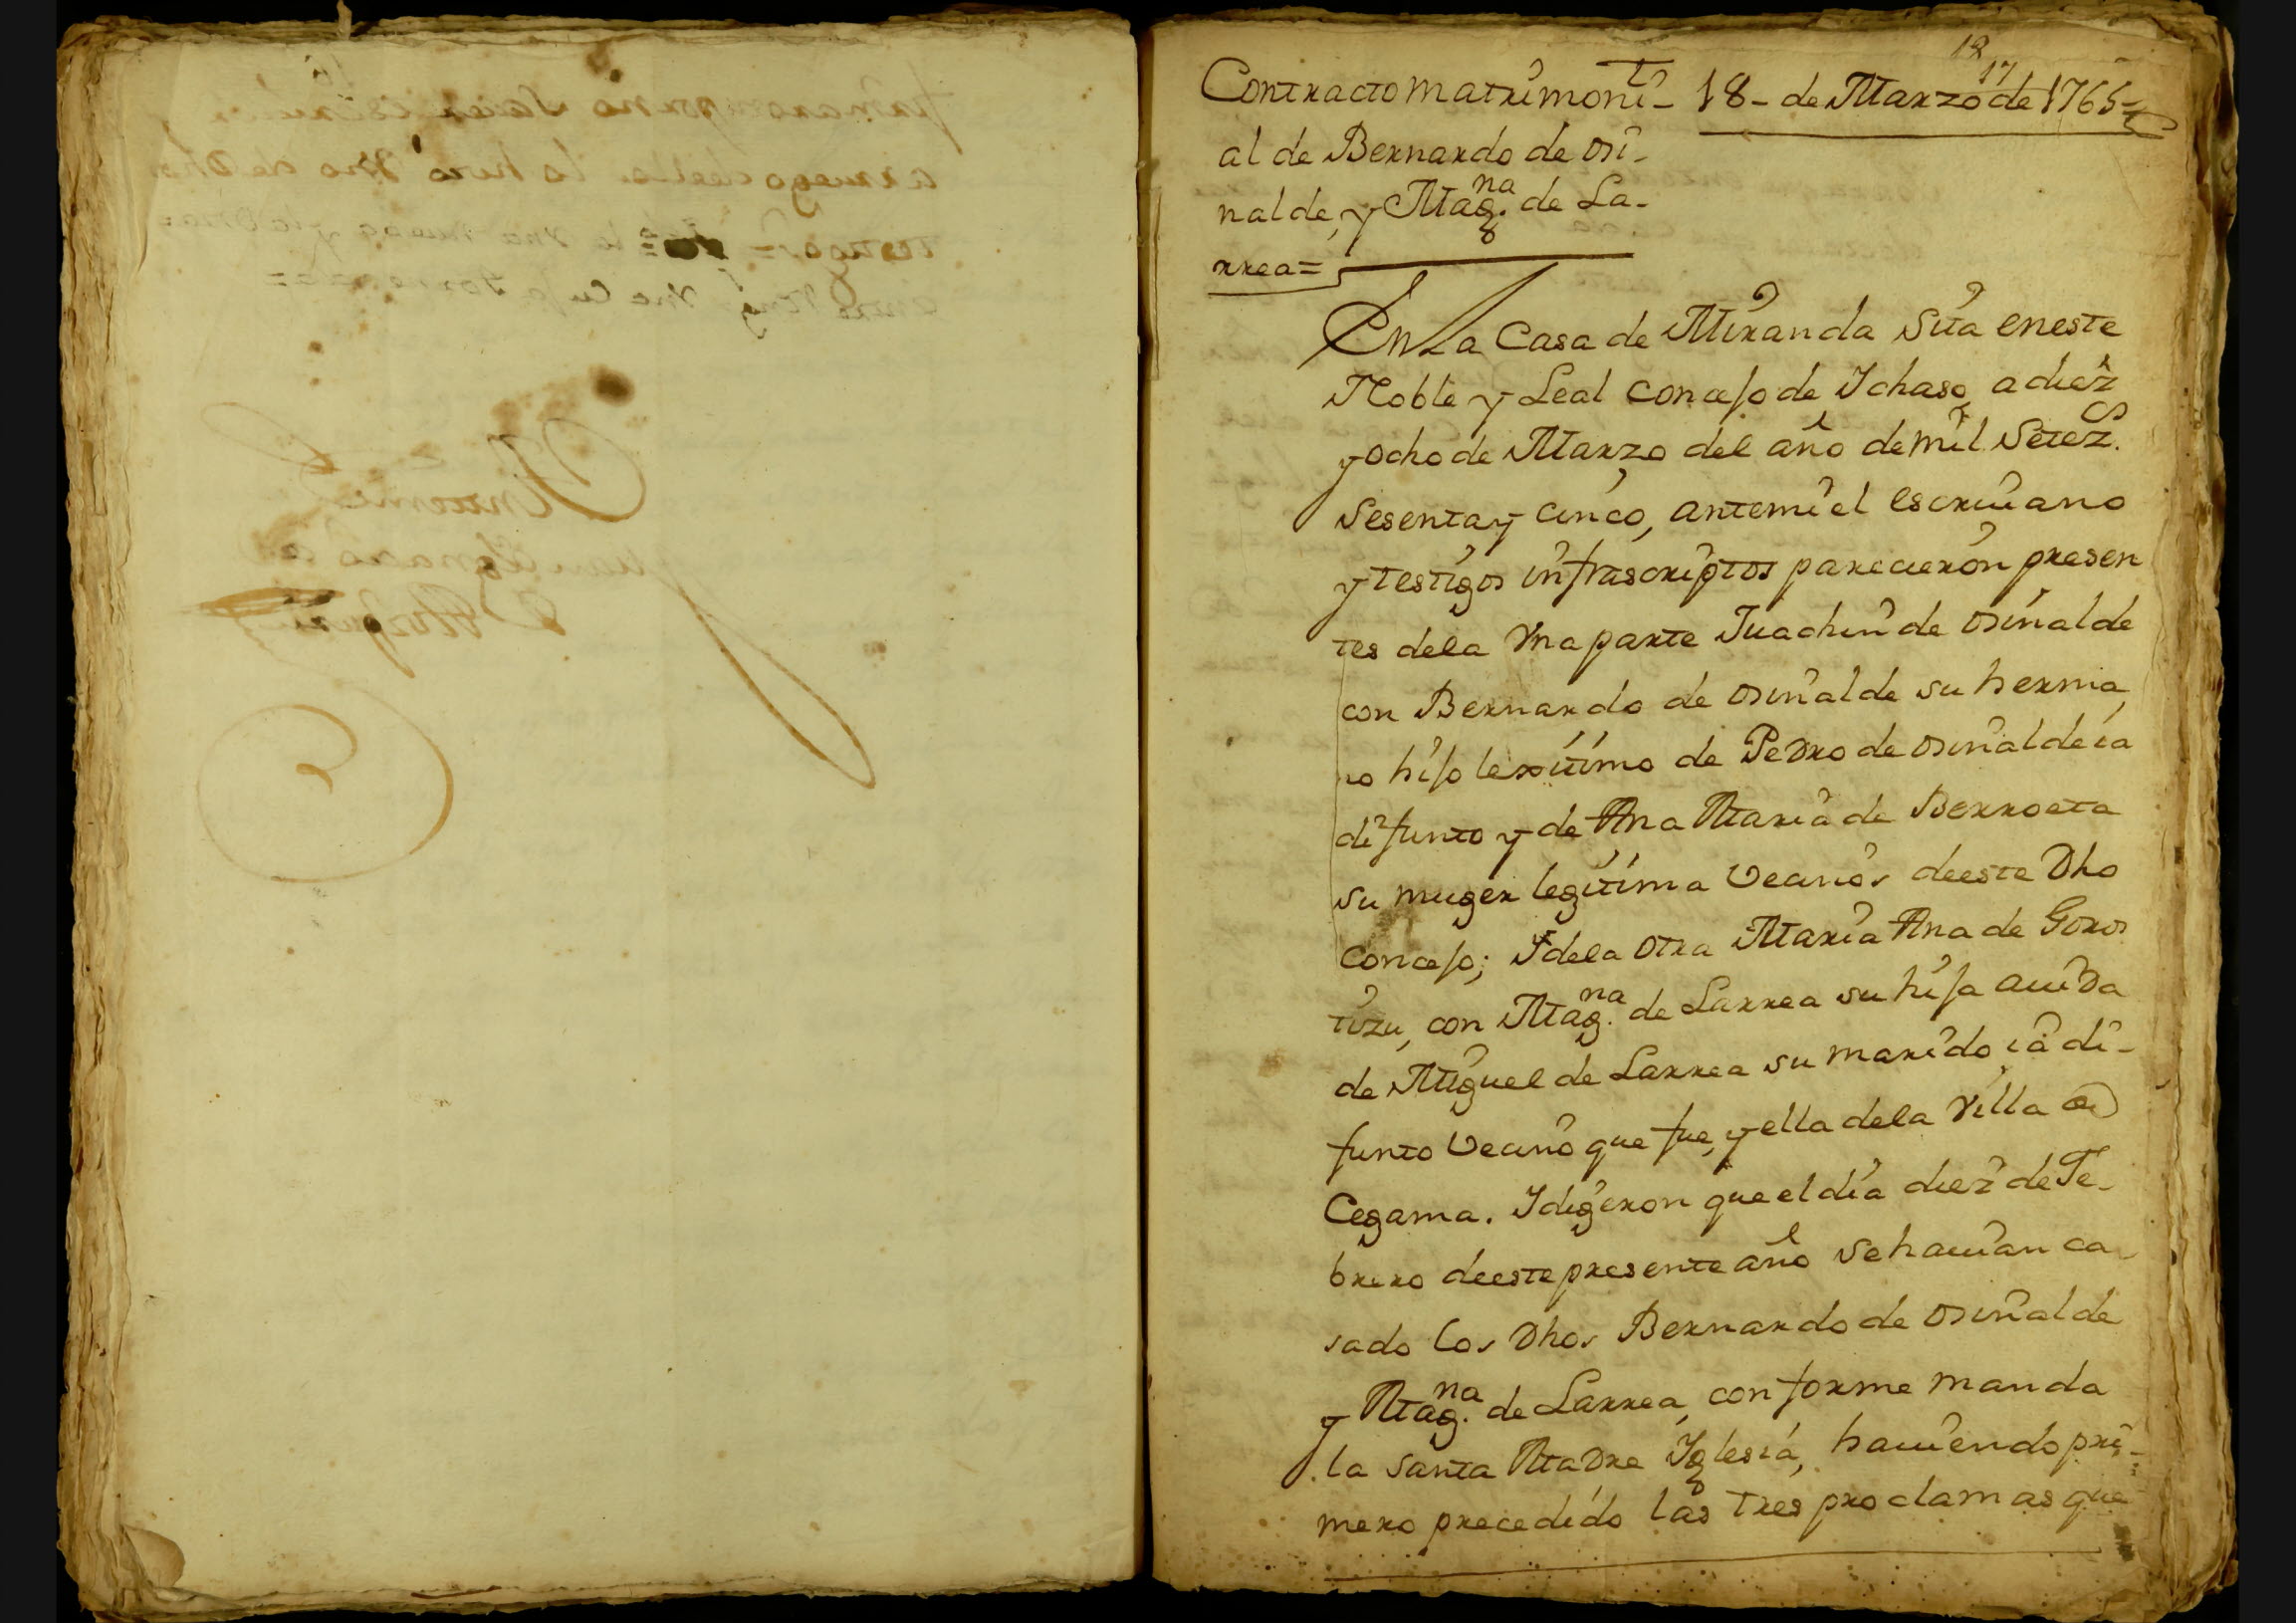 18
17
Contracto matrimoni- 18- de Marzo de 1765=
al de Bernardo de osi-
nalde, y Mag.na de La-
rrea=
En La Casa de Miranda Sita eneste
Noble y Leal Concejo de Ichaso, a diez
y ocho de Marzo del año de mil Setez.s
Sesenta y cinco, antemi el escriuano
y testigos infrascriptos parecieron presen
tes dela Vna parte Juachin de osinalde
con Bernardo de osinalde su herma
no hijo lexitimo de Pedro de osinalde ia
difunto y de Ana Maria de Berroeta
su muger legitima Vecinos deeste Dho
Concejo; I dela otra Maria Ana de Goros
tizu, con Mag.na de Larrea su hija auida
de Miguel de Larrea su marido, ia di-
funto Vecino que fue, y ella dela Villa de
Cegama. I digeron que el dia diez de Fe-
brero deeste presente año se hauian ca-
sado los Dhos Bernardo de osinalde
y Mag.na de Larrea, conforme manda
la santa Madre Iglesia, hauiendo pri-
mero precedido las tres proclamas que